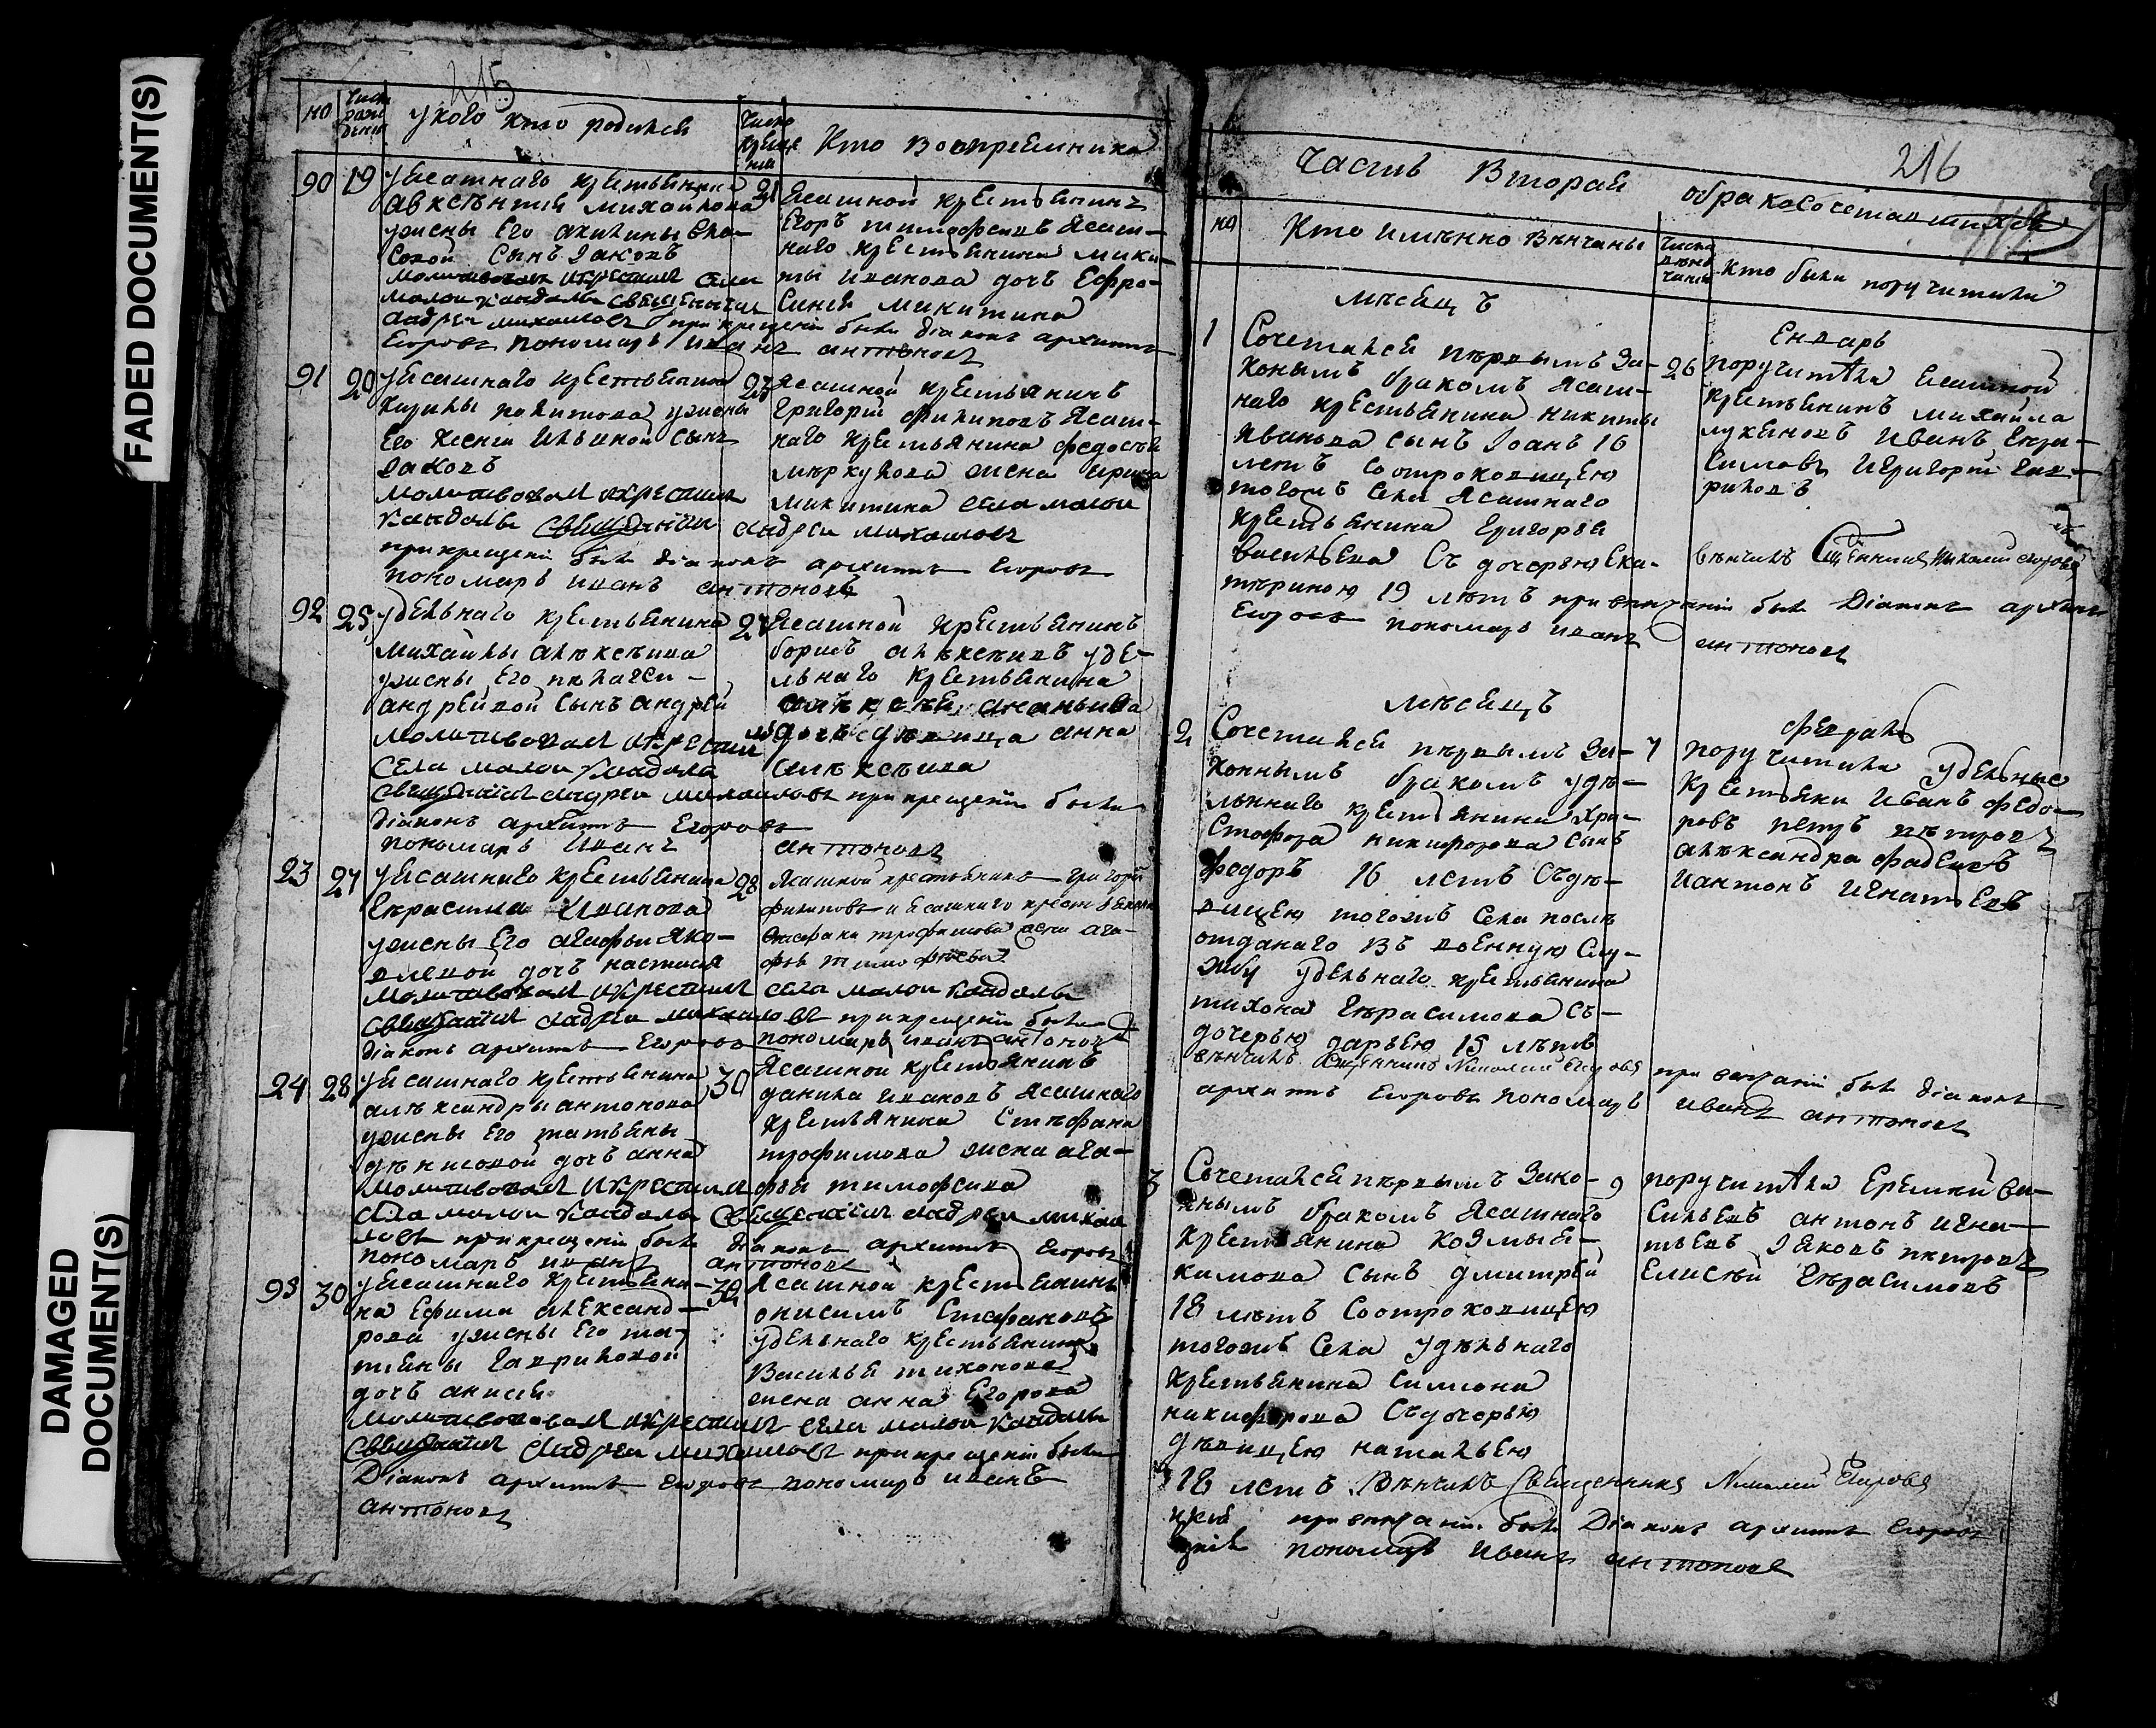 FADED DOCUMENT(S)
DAMAGED DOCUMENT(S)
215
но
Число рождения
У кого кто родился
Число крещения
Кто восприемники
90 19 21
у ясашнаго крестьянина
авксентия михайлова
у жены его акилины
сын Iаковъ
молитвовал и крестил села
малой кандалы священник
андрей михайлов при крещении были диаконъ архипъ
Егоров пономарь иванъ антонов
Ясашной крестьянинъ
Егоръ тимофеевъ Ясаш-
наго крестьянина мики-
ты иванова дочь Ефро-
синия микитина
91 20 23
у ясашнаго крестьянина
у жены
его ксении ильиной сынъ
иаковъ
молитвовал и крестил
кандалы священник андрей михайлов
при крещении были диаконъ архипъ Егоров
пономарь иванъ антоновъ
Ясашной крестьянинъ
григорий филиповъ Ясаш-
наго крестьянина федосея
меркулова жена ирина
микитина села малой
92 25 27
удельнаго крестьянина
михайлы алексеева
у жены его пелагеи
андреевой сынъ андрей
молитвовал и крестил
села малой кандалы
священник андрей михайлов при крещении были
диаконъ архипъ Егоров
пономарь иванъ антонов
Ясашной крестьянинъ
борисъ алексеевъ уде-
льнаго крестьянина
алексея ананьева
дочь девица анна
алексеева
93 27 28
у ясашнаго крестьянина
Герасима иванова
у жены его агафьи яко-
влевой дочь настасия
молитвовал и крестил села малой кандалы
священник андрей михайлов при крещении были
диаконъ архипъ Егоров пономарь иванъ антонов
Ясашной крестьянинъ григорий
филиповъ и ясашнаго крестьянина
Стефана трофимова жена ага-
фья тимофеева
94 28 30
у ясашнаго крестьянина
александры антонова
у жены его татьяны
денисовой дочь анна
молитвовал и крестил
села малой кандалы священник андрей михаи
ловъ при крещении были диаконъ архипъ Егоров
пономарь иванъ антонов
Ясашной крестьянинъ
данила ивановъ Ясашнаго
крестьянина Стефана
трофимова жена ага-
фья тимофеева
95 30 30
у ясашнаго крестьяни-
на Ефима александ-
рова у жены его та-
тияны гавриловой
дочь анисия
молитвовал и крестил села малой кандалы
священник андрей михайлов при крещении были
Диаконъ архипъ Егоров пономарь иванъ
антонов
Ясашной крестьянинъ
онисимъ Стефановъ
удельнаго крестьянина
Василья тихонова
жена анна Егорова
216
часть Вторая о бракосочетавшихся
но
Кто именно венчаны
Числа венчания
Кто были поручители
месяцъ Енварь
1 26
Сочетался первымъ за-
конымъ бракомъ Ясаш-
наго крестьянина никиты
Иванова сынъ Iоанъ 16
летъ со отроковицею
тогожъ села Ясашнаго
крестьянина григорья
васильева съ дочерью Ека-
териною 19 летъ при венчании были Диаконъ архипъ
Егоров пономарь иванъ антонов
поручители Ясашной
крестьянинъ михайла
лукьяновъ иванъ гера-
симовъ и григорий гав-
риловъ
венчалъ Священникъ Николай Егоровъ
месяцъ февраль
2 7
Сочетался первымъ за-
коннымъ бракомъ уде-
льнаго крестьянина хри-
стофора никифорова сынъ
федоръ 16 летъ съ де-
вицею тогожъ села послъ
отданаго въ военную слу-
жбу удельнаго крестьянина
тихона герасимова съ
дочерью дарьею 15 летъ
венчалъ Священникъ Николай Егоровъ при венчании были диаконъ
архипъ Егоров пономарь иванъ антонов
поручители удельные
крестьяни иванъ федо-
ровъ петръ петровъ
александра фадеевъ
и антонъ игнатьевъ
3 9
Сочетался первымъ зако-
нымъ бракомъ Ясашнаго
крестьянина козмы я-
кимова сынъ дмитрей
18 летъ со отроковицею
тогожъ села удельнаго
крестьянина симиона
никифорова съ дочерью
девицею натальею
18 летъ. Венчалъ Священникъ Николай Егоровъ
при венчании были Диаконъ архипъ Егоров
пономарь иванъ антонов
поручители Еремей ва-
сильевъ антонъ игна-
тьевъ Iяковъ петровъ
Елисей герасимовъ